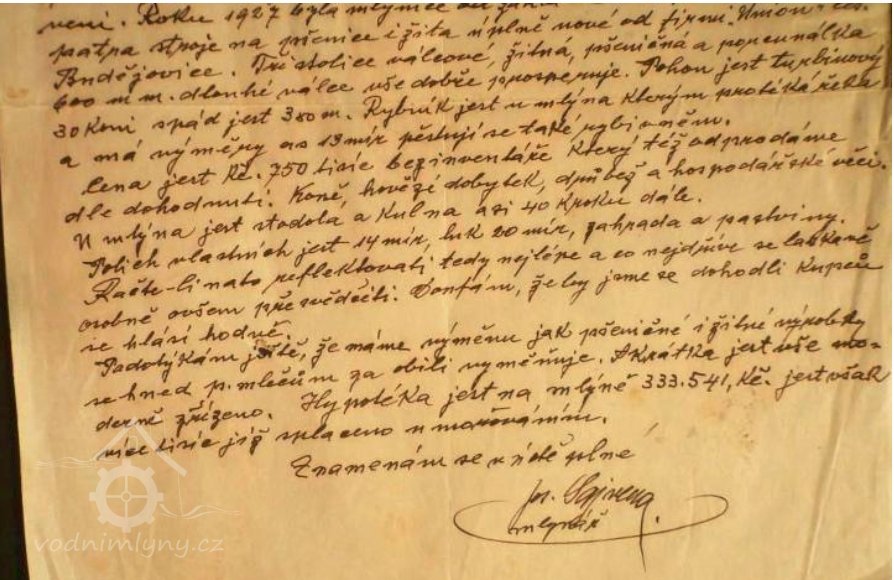 vení. Roku 1927 byla mlýnice od
patra stroje na pšenice i žita úplně nové od firmi. Union
Budějovice. Tři stolice válcové, žitná, pšeničná a
600 m m. dlouhé válce vše dobře prosperuje. Pohon jest turbinový
30 koní spád jest 380 m. Rybník jest u mlýna kterým protéká řeka
a má výměry as 13 mír pěstují se také ryby v něm.
Cena jest Kč. 750 tisíc bez inventáře který též odprodáme
dle dohodnutí. Koně, hovězí dobytek, drůbež a hospodářské věci.
U mlýna jest stodola a kulna asi 40 kroku dále.
Polích vlastních jest 14 mír, luk 20 mír, zahrada a pastviny.
Račte-li nato reflektovati tedy nejlépe a co nejdříve se laskavě
osobně ovšem přesvědčiti. Doufám, že by jsme se dohodli kupců
se hlásí hodně.
Podotýkám ještě, že máme výměnu jak pšeničné i žitné výrobky
se hned p. mlečům za obilí vyměňuje. A krátka jest vše mo-
derně zřízeno. Hypotéka jest na mlýně 333.541, Kč. jest však
více tisíc již splaceno
Znamenám se v úctě plné
Jos.
mlynář
vodnimlyny.cz